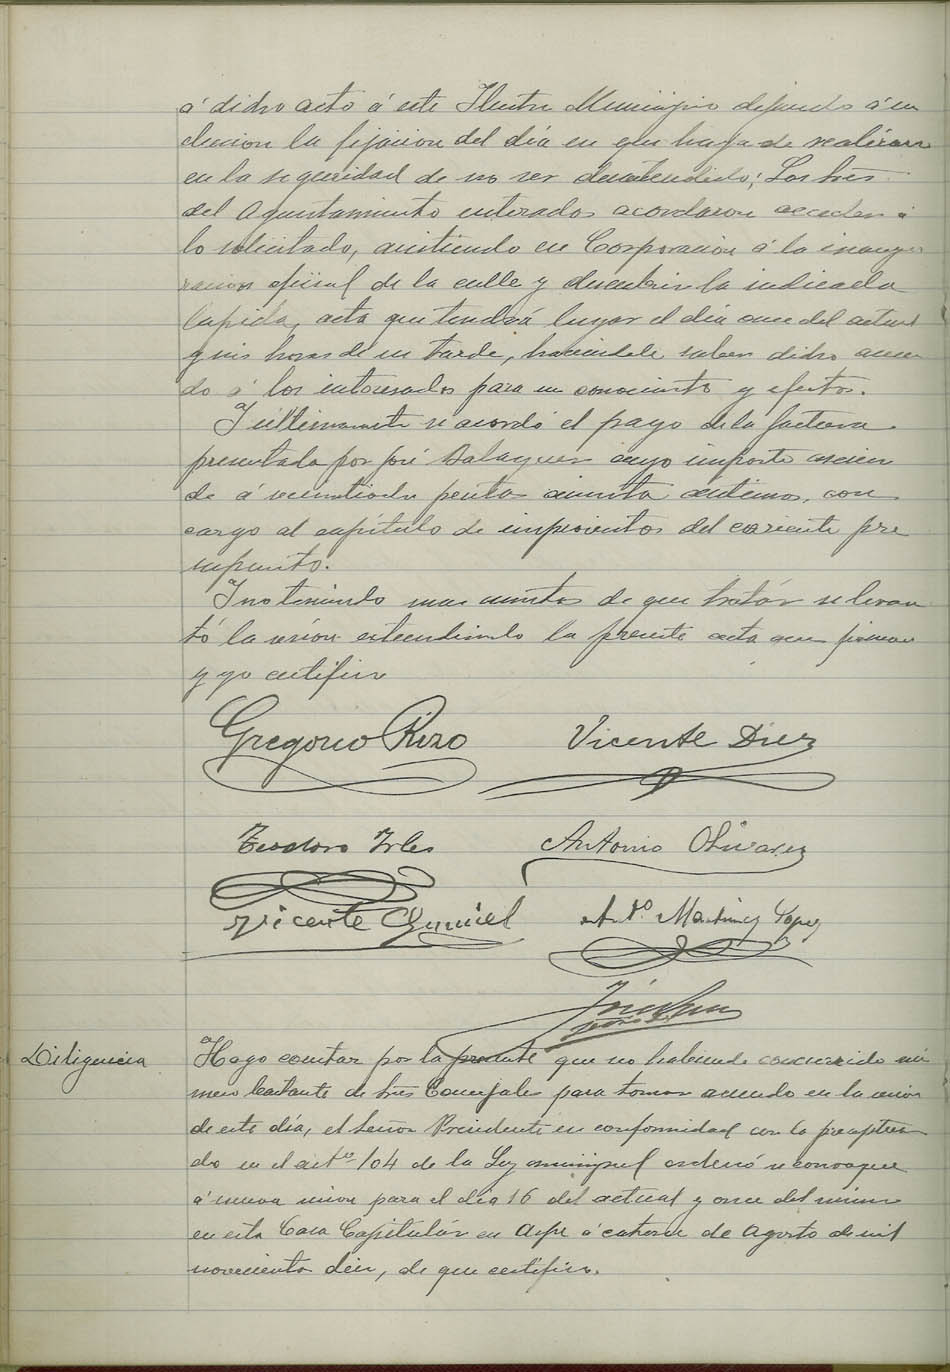 á dicho acto á este Ilustre Municipio dejando á su
eleccion la fijacion del dia en que haya de realizarse
en la seguridad de no ser desatendido; Los Sres
del Ayuntamiento enterados acordaron acceder á
lo solicitado, asistiendo en Corporacion á la inaugu
racion oficial de la calle y descubrir la indicada
lapida, acto que tendrá lugar el dia once del actual
y seis horas de su tarde, haciendole saber dicho acuer
do á los interesados para su conocimto y efectos.
Y ultimamente se acordó el pago de la factura
presentada por José Balaguer cuyo importe ascien
de á pesetas cincuenta centimos, con
cargo al capitulo de imprevistos del corriente pre
supuesto.
Y no teniendo mas asuntos de que tratár se levan
tó la sesion estendiendo la presente acta que firman
y yo certifico
Gregorio Rizo Vicente Diez
Teodoro Irles Antonio Olivarez
Vicente Anto Martinez Lopez
Diligencia
Hago constar por la presente que no habiendo concurrido nú
mero bastante de Sres Concejales para tomar acuerdo en la sesion
de este dia, el Señor Presidente en conformidad con lo preceptua
do en el artº 104 de la Ley municipal ordenó se convoque
á nueva sesion para el dia 16 del actual y once del mismo
en esta Casa Capitulár en Aspe á catorce de Agosto de mil
novecientos diez, de que certifico.